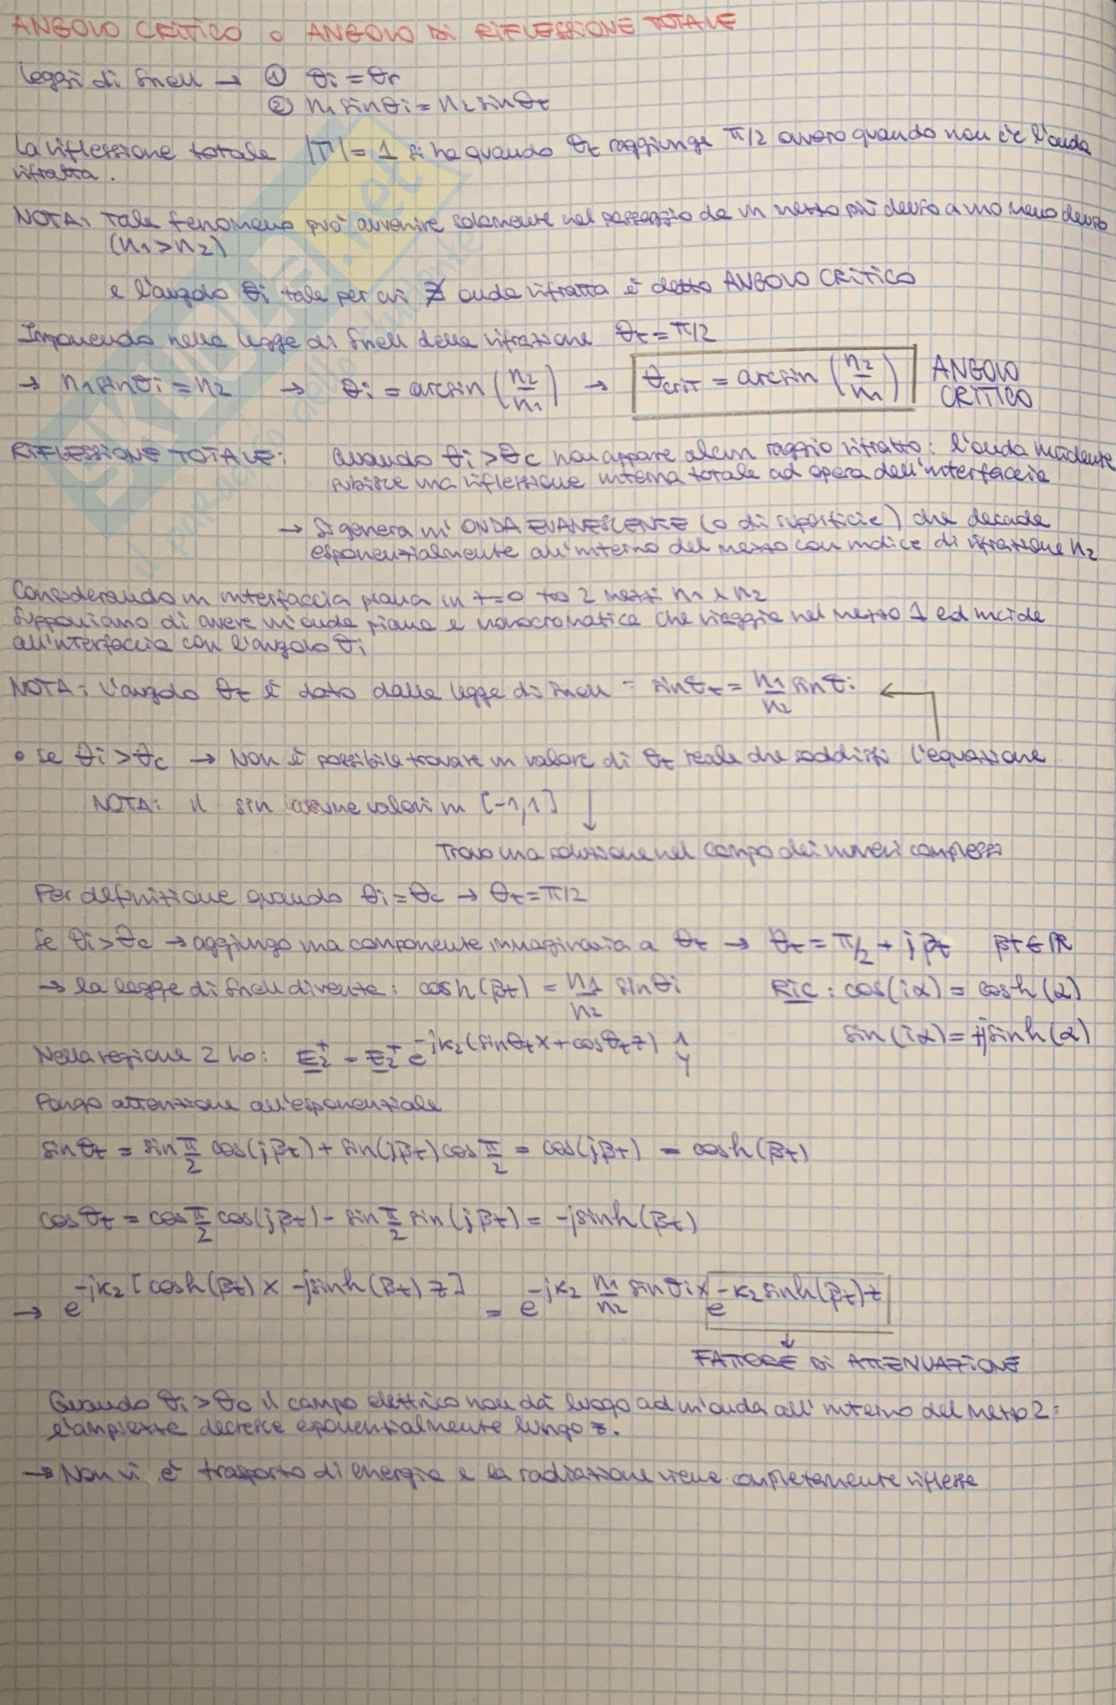 ANGOLO CRITICO o ANGOLO DI RIFLESSIONE TOTALE
Leggi di Snell → ① θi = θr
② n₁ sinθi = n₂ sinθt
La riflessione totale |Γ| = 1 si ha quando θt raggiunge π/2 ovvero quando non c'è l'onda
rifratta.
NOTA: Tale fenomeno può avvenire solamente nel passaggio da un mezzo più denso a uno meno denso
(n₁ > n₂)
e l'angolo θi tale per cui ∄ onda rifratta è detto ANGOLO CRITICO
Imponendo nella legge di Snell della rifrazione θt = π/2
→ n₁ sinθi = n₂ → θi = arcsin (n₂/n₁) → θcrit = arcsin (n₂/n₁) ANGOLO
CRITICO
RIFLESSIONE TOTALE: Quando θi > θc non appare alcun raggio rifratto: l'onda incidente
subisce una riflessione interna totale ad opera dell'interfaccia
→ Si genera un'ONDA EVANESCENTE (o di superficie) che decade
esponenzialmente all'interno del mezzo con indice di rifrazione n₂
Considerando un interfaccia piana in z=0 tra 2 mezzi n₁ e n₂
Supponiamo di avere un'onda piana e monocromatica che viaggia nel mezzo 1 ed incide
all'interfaccia con l'angolo θi
NOTA: L'angolo θt è dato dalla legge di Snell = sinθt = n₁/n₂ sinθi
• Se θi > θc → Non è possibile trovare un valore di θt reale che soddisfi l'equazione
NOTA: il sin assume valori in [-1,1]
Trovo una soluzione nel campo dei numeri complessi
Per definizione quando θi = θc → θt = π/2
Se θi > θc → aggiungo una componente immaginaria a θt → θt = π/2 + jβt βt ∈ ℝ
→ la legge di Snell diventa: cosh(βt) = n₁/n₂ sinθi RIC: cos(iα) = cosh(α)
sin(iα) = +jsinh(α)
Nella regione 2 ho: E₂⁺ = E₂⁺ e^-jk₂(sinθt x + cosθt z) ŷ
Pongo attenzione all'esponenziale
sinθt = sin π/2 cos(jβt) + sin(jβt) cos π/2 = cos(jβt) = cosh(βt)
cosθt = cos π/2 cos(jβt) - sin π/2 sin(jβt) = -jsinh(βt)
→ e^-jk₂[cosh(βt) x - jsinh(βt) z] = e^-jk₂ n₁/n₂ sinθi x e^-k₂ sinh(βt) z
FATTORE DI ATTENUAZIONE
Quando θi > θc il campo elettrico non dà luogo ad un'onda all'interno del mezzo 2:
l'ampiezza decresce esponenzialmente lungo z.
→ Non vi è trasporto di energia e la radiazione viene completamente riflessa